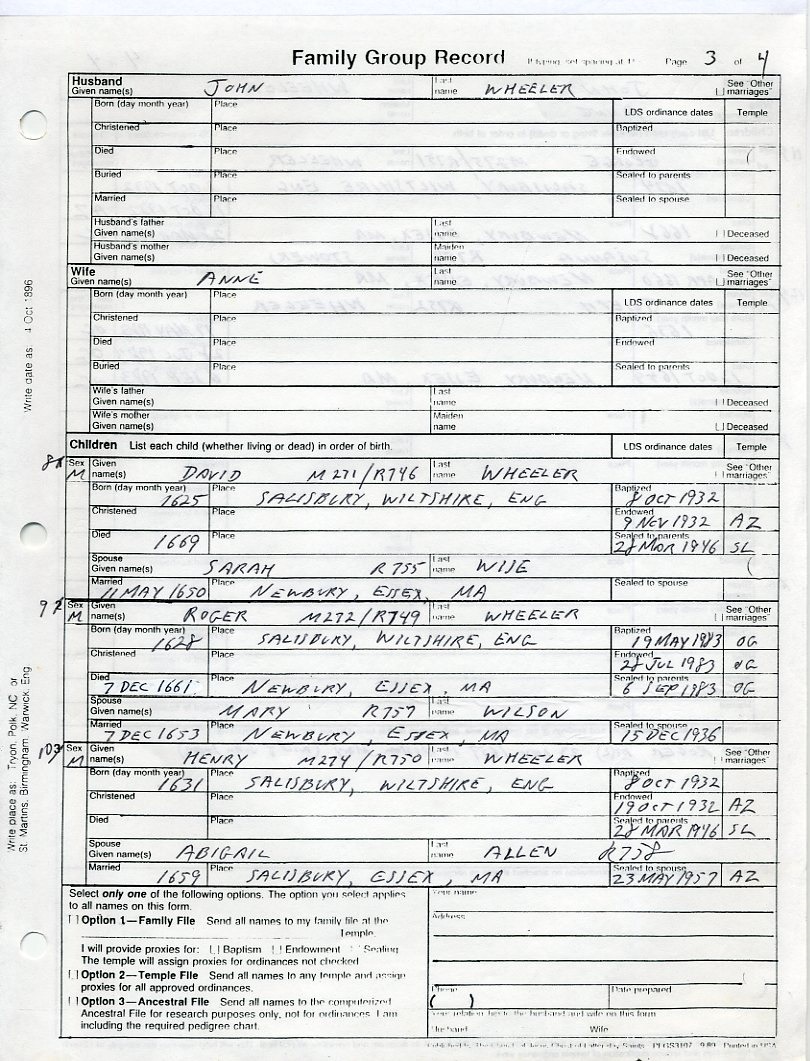 Family Group Record If typing, set spacing at 1½ Page 3 of 4
Husband Given name(s) JOHN Last name WHEELER See "Other marriages"
Born (day month year) Place LDS ordinance dates Temple
Christened Place Baptized
Died Place Endowed
Buried Place Sealed to parents
Married Place Sealed to spouse
Husband's father Given name(s) Last name Deceased
Husband's mother Given name(s) Maiden name Deceased
Wife Given name(s) ANNE Last name See "Other marriages"
Born (day month year) Place LDS ordinance dates Temple
Christened Place Baptized
Died Place Endowed
Buried Place Sealed to parents
Wife's father Given name(s) Last name Deceased
Wife's mother Given name(s) Maiden name Deceased
Children List each child (whether living or dead) in order of birth. LDS ordinance dates Temple
Sex M Given name(s) DAVID M271/R746 Last name WHEELER See "Other marriages"
Born (day month year) 1625 Place SALISBURY, WILTSHIRE, ENG Baptized 8 OCT 1932
Christened Place Endowed 9 NOV 1932 AZ
Died 1669 Place Sealed to parents 28 MAR 1946 SL
Spouse Given name(s) SARAH R755 Last name WISE
Married 11 MAY 1650 Place NEWBURY, ESSEX, MA Sealed to spouse
Sex M Given name(s) ROGER M272/R749 Last name WHEELER See "Other marriages"
Born (day month year) 1628 Place SALISBURY, WILTSHIRE, ENG Baptized 19 MAY 1983 OG
Christened Place Endowed 28 JUL 1983 OG
Died 7 DEC 1661 Place NEWBURY, ESSEX, MA Sealed to parents 6 SEP 1983 OG
Spouse Given name(s) MARY R757 Last name WILSON
Married 7 DEC 1653 Place NEWBURY, ESSEX, MA Sealed to spouse 15 DEC 1936
Sex M Given name(s) HENRY M274/R750 Last name WHEELER See "Other marriages"
Born (day month year) 1631 Place SALISBURY, WILTSHIRE, ENG Baptized 8 OCT 1932
Christened Place Endowed 19 OCT 1932 AZ
Died Place Sealed to parents 28 MAR 1946 SL
Spouse Given name(s) ABIGAIL Last name ALLEN R758
Married 1659 Place SALISBURY, ESSEX, MA Sealed to spouse 23 MAY 1957 AZ
Select only one of the following options. The option you select applies
to all names on this form.
Option 1—Family File Send all names to my family file at the
Temple.
I will provide proxies for: Baptism Endowment Sealing
The temple will assign proxies for ordinances not checked
Option 2—Temple File Send all names to any temple and assign
proxies for all approved ordinances.
Option 3—Ancestral File Send all names to the computerized
Ancestral File for research purposes only, not for ordinances. I am
including the required pedigree chart.
Your name
Address
Phone ( ) Date prepared
Your relation to the husband and wife on this form
Husband Wife
Published by The Church of Jesus Christ of Latter-day Saints PFGS3107 9/89 Printed in USA
Write date as: 4 Oct 1896
Write place as: Tryon, Polk, NC or
St. Martins, Birmingham, Warwick, Eng.